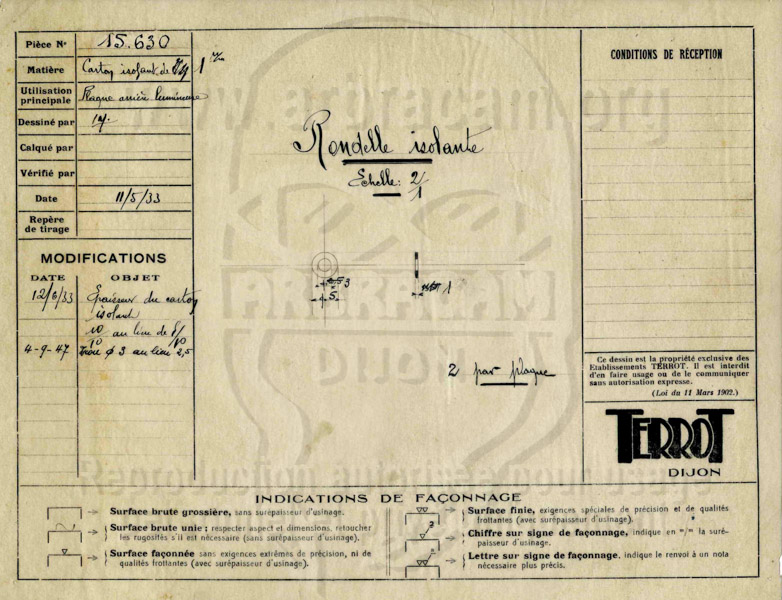 Pièce Nº 15.630
Matière Carton isolant de 1 m/m
Utilisation principale Plaque arrière
Dessiné par
Calqué par
Vérifié par
Date 11/5/33
Repère de tirage
MODIFICATIONS
DATE OBJET
12/6/33 Epaisseur du carton
isolant
10/10 au lieu de 5/10
4-9-47 trou φ 3 au lieu 2,5
Rondelle isolante
Echelle: 2/1
3
5
1
2 par plaque
CONDITIONS DE RÉCEPTION
Ce dessin est la propriété exclusive des
Etablissements TERROT. Il est interdit
d'en faire usage ou de le communiquer
sans autorisation expresse.
(Loi du 11 Mars 1902.)
TERROT
DIJON
INDICATIONS DE FAÇONNAGE
Surface brute grossière, sans surépaisseur d'usinage.
Surface brute unie : respecter aspect et dimensions, retoucher
les rugosités s'il est nécessaire (sans surépaisseur d'usinage).
Surface façonnée sans exigences extrêmes de précision, ni de
qualités frottantes (avec surépaisseur d'usinage).
Surface finie, exigences spéciales de précision et de qualités
frottantes (avec surépaisseur d'usinage).
3
Chiffre sur signe de façonnage, indique en m/m la suré-
paisseur d'usinage.
Lettre sur signe de façonnage, indique le renvoi à un nota
nécessaire plus précis.
www.arpracam.org
ARPRACAM
DIJON